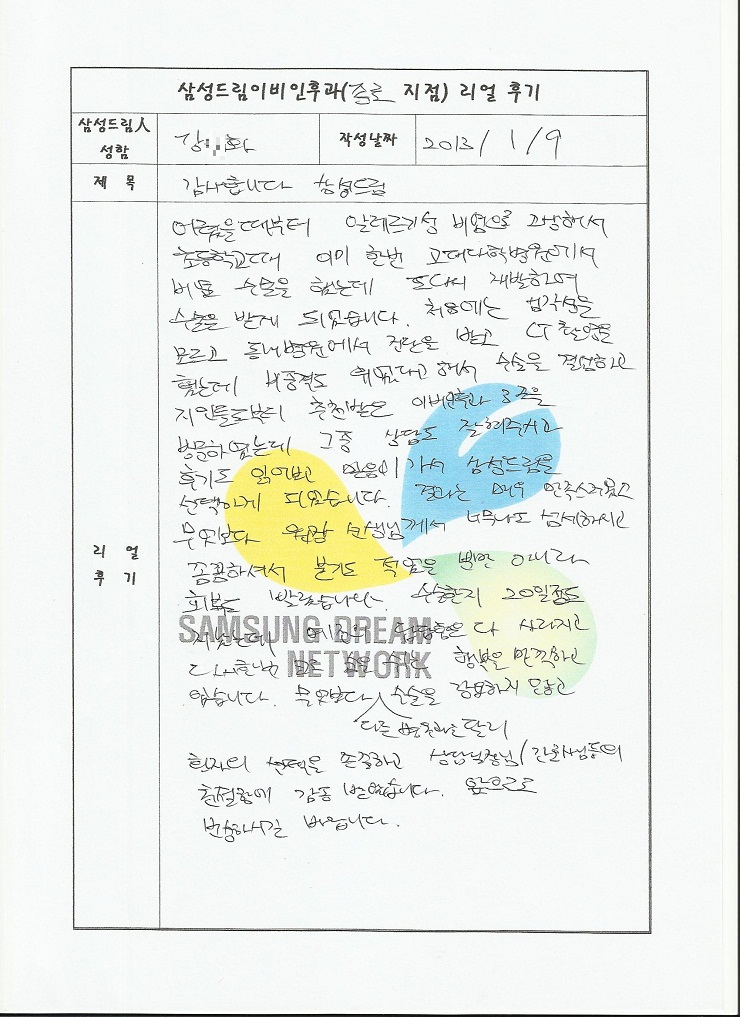 삼성드림이비인후과(종로 지점) 리얼 후기
삼성드림人
성함
김 화
작성날짜
2013/1/9
제 목
감사합니다 삼성드림
리 얼
후 기
어렸을때부터 알레르기성 비염으로 고생해서
초등학교때 이미 한번 고대대학병원에서
비염 수술을 했는데 또다시 재발하여
수술을 받게 되었습니다. 처음에는 심각성을
모르고 동네병원에서 진단을 받고 CT촬영을
했는데 비중격도 휘었다고해서 수술을 결심하고
지인들로부터 추천받은 이비인후과 3곳을
방문하였는데 그중 상담도 잘해주시고
후기도 읽어보고 믿음이 가서 삼성드림을
선택하게 되었습니다. 결과는 매우 만족스러웠고
무엇보다 원장 선생님께서 너무나도 섬세하시고
꼼꼼하셔서 붓기도 적었을 뿐만 아니라
회복도 빨랐습니다. 수술한지 20일정도
지났는데 예전의 답답함은 다 사라지고
코로 숨을 쉬는 행복을 만끽하고
있습니다. 무엇보다 수술을 강요하지 않고
다른 병원과는 달리
환자의 선택을 존중하고 상담실장님/간호사님들의
친절함에 감동 받았습니다. 앞으로도
번창하시길 바랍니다.
SAMSUNG DREAM
NETWORK